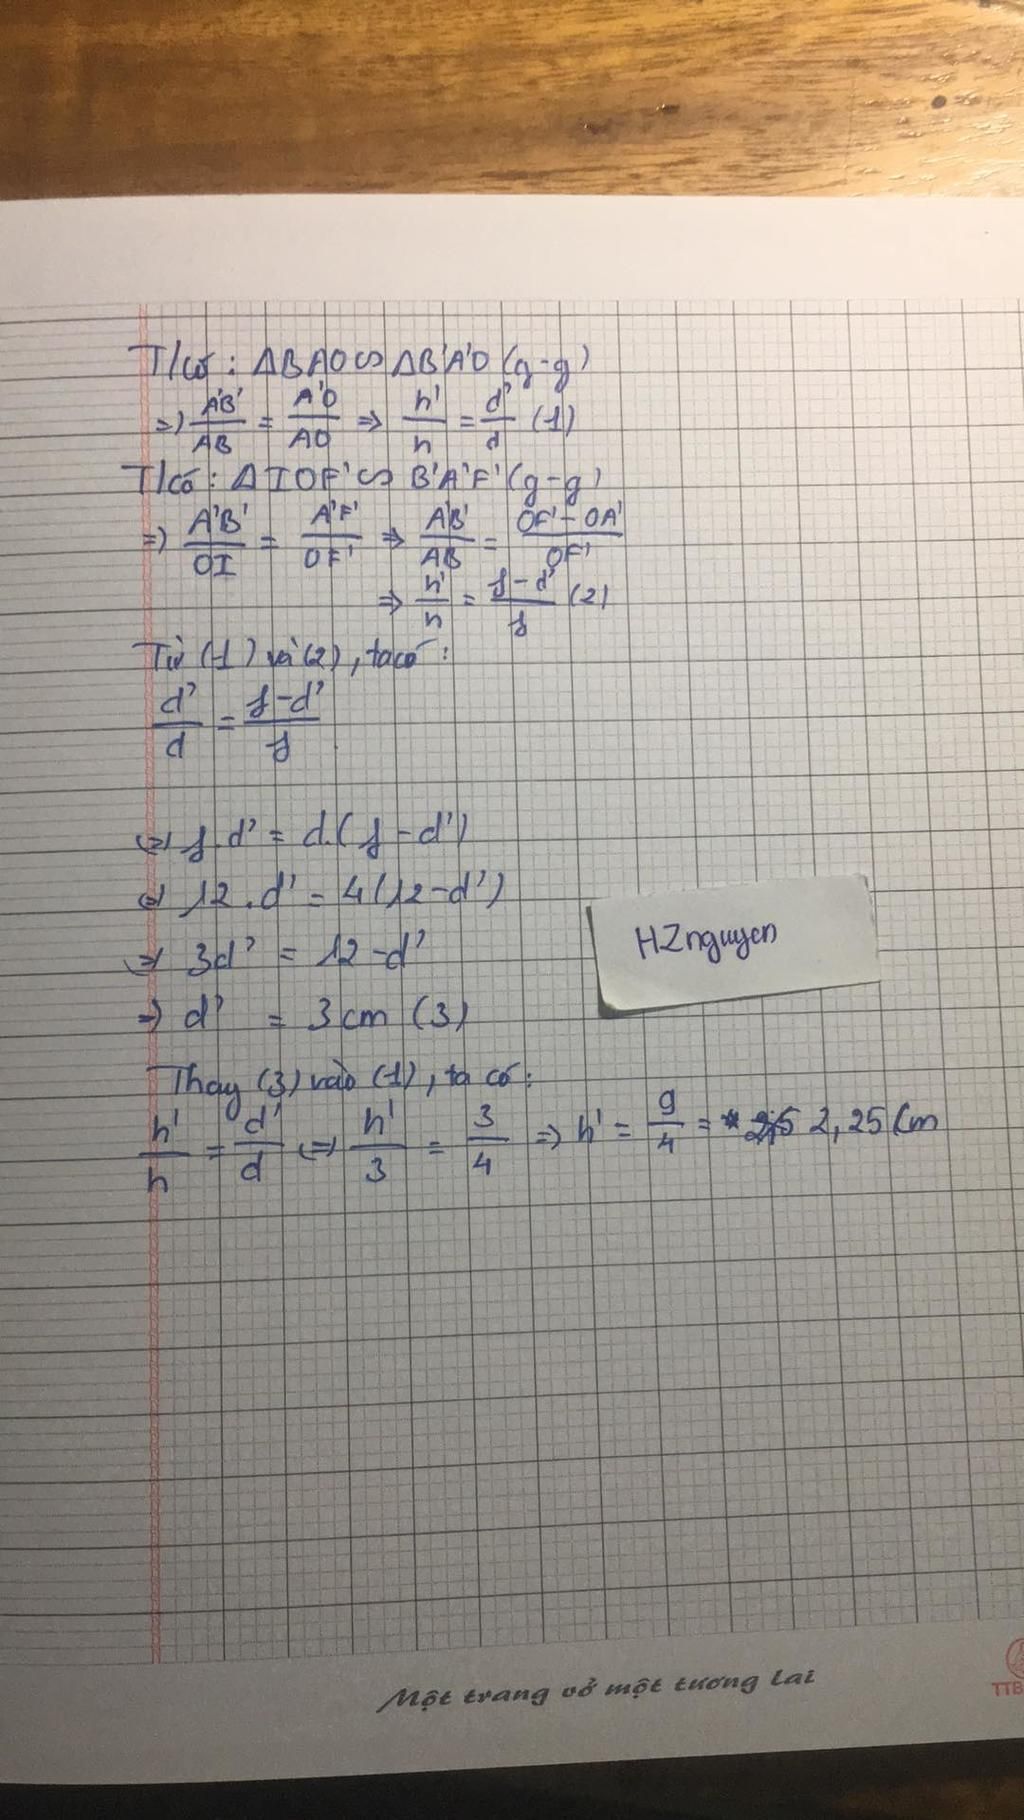 T/có : ΔBAO ∽ ΔB'A'O (g-g)
=> A'B'/AB = A'O/AO => h'/h = d'/d (1)
T/có : ΔIOF' ∽ B'A'F' (g-g)
=> A'B'/OI = A'F'/OF' => A'B'/AB = OF'-OA'/OF'
=> h'/h = f-d'/f (2)
Từ (1) và (2), ta có :
d'/d = f-d'/f
<=> f.d' = d.(f-d')
<=> 12.d' = 4(12-d')
=> 3d' = 12-d'
=> d' = 3cm (3)
Thay (3) vào (1), ta có :
h'/h = d'/d <=> h'/3 = 3/4 => h' = 9/4 = 2,25 cm
HZnguyen
Một trang vở một tương lai
TTB